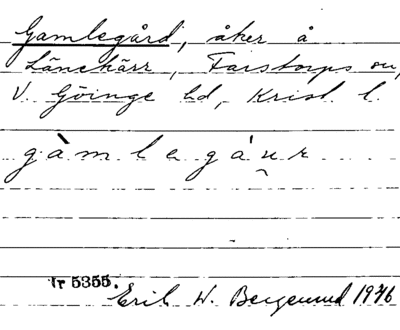 Gamlegård, åker å
Länekärr, Farstorps sn,
V. Göinge hd, Krist. l.
g à m l e g á u̯ r
Nr 5355.
Erik W. Bergemund 1976